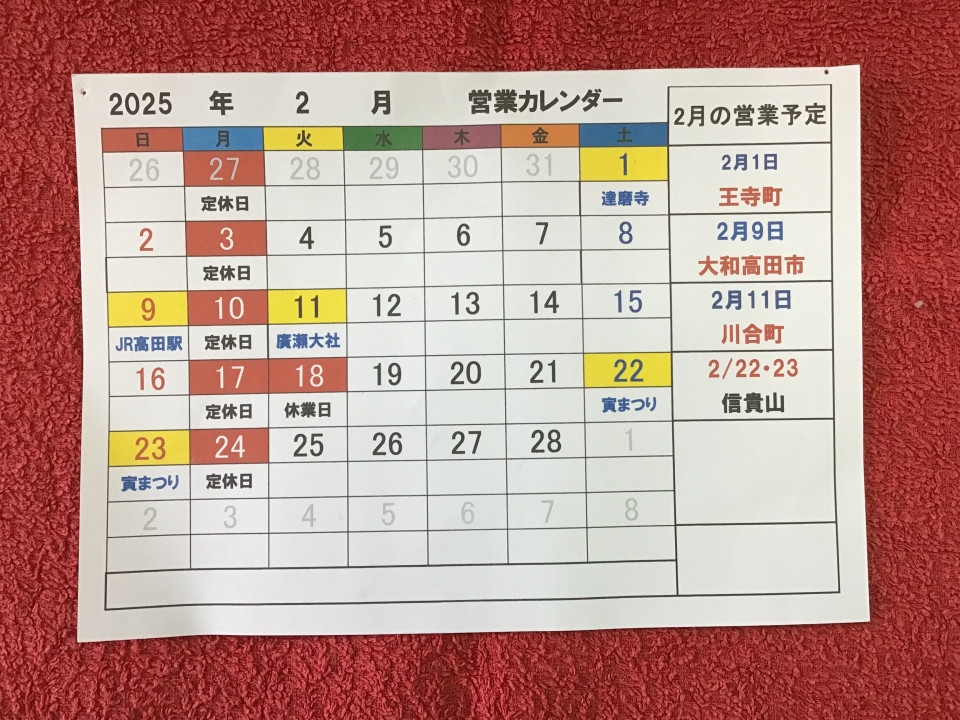 2025 年 2 月 営業カレンダー
2月の営業予定
日 月 火 水 木 金 土
26 27 28 29 30 31 1
定休日 達磨寺
2月1日
王寺町
2 3 4 5 6 7 8
定休日
2月9日
大和高田市
9 10 11 12 13 14 15
JR高田駅 定休日 廣瀬大社
2月11日
川合町
16 17 18 19 20 21 22
定休日 休業日 寅まつり
2/22・23
信貴山
23 24 25 26 27 28 1
寅まつり 定休日
2 3 4 5 6 7 8